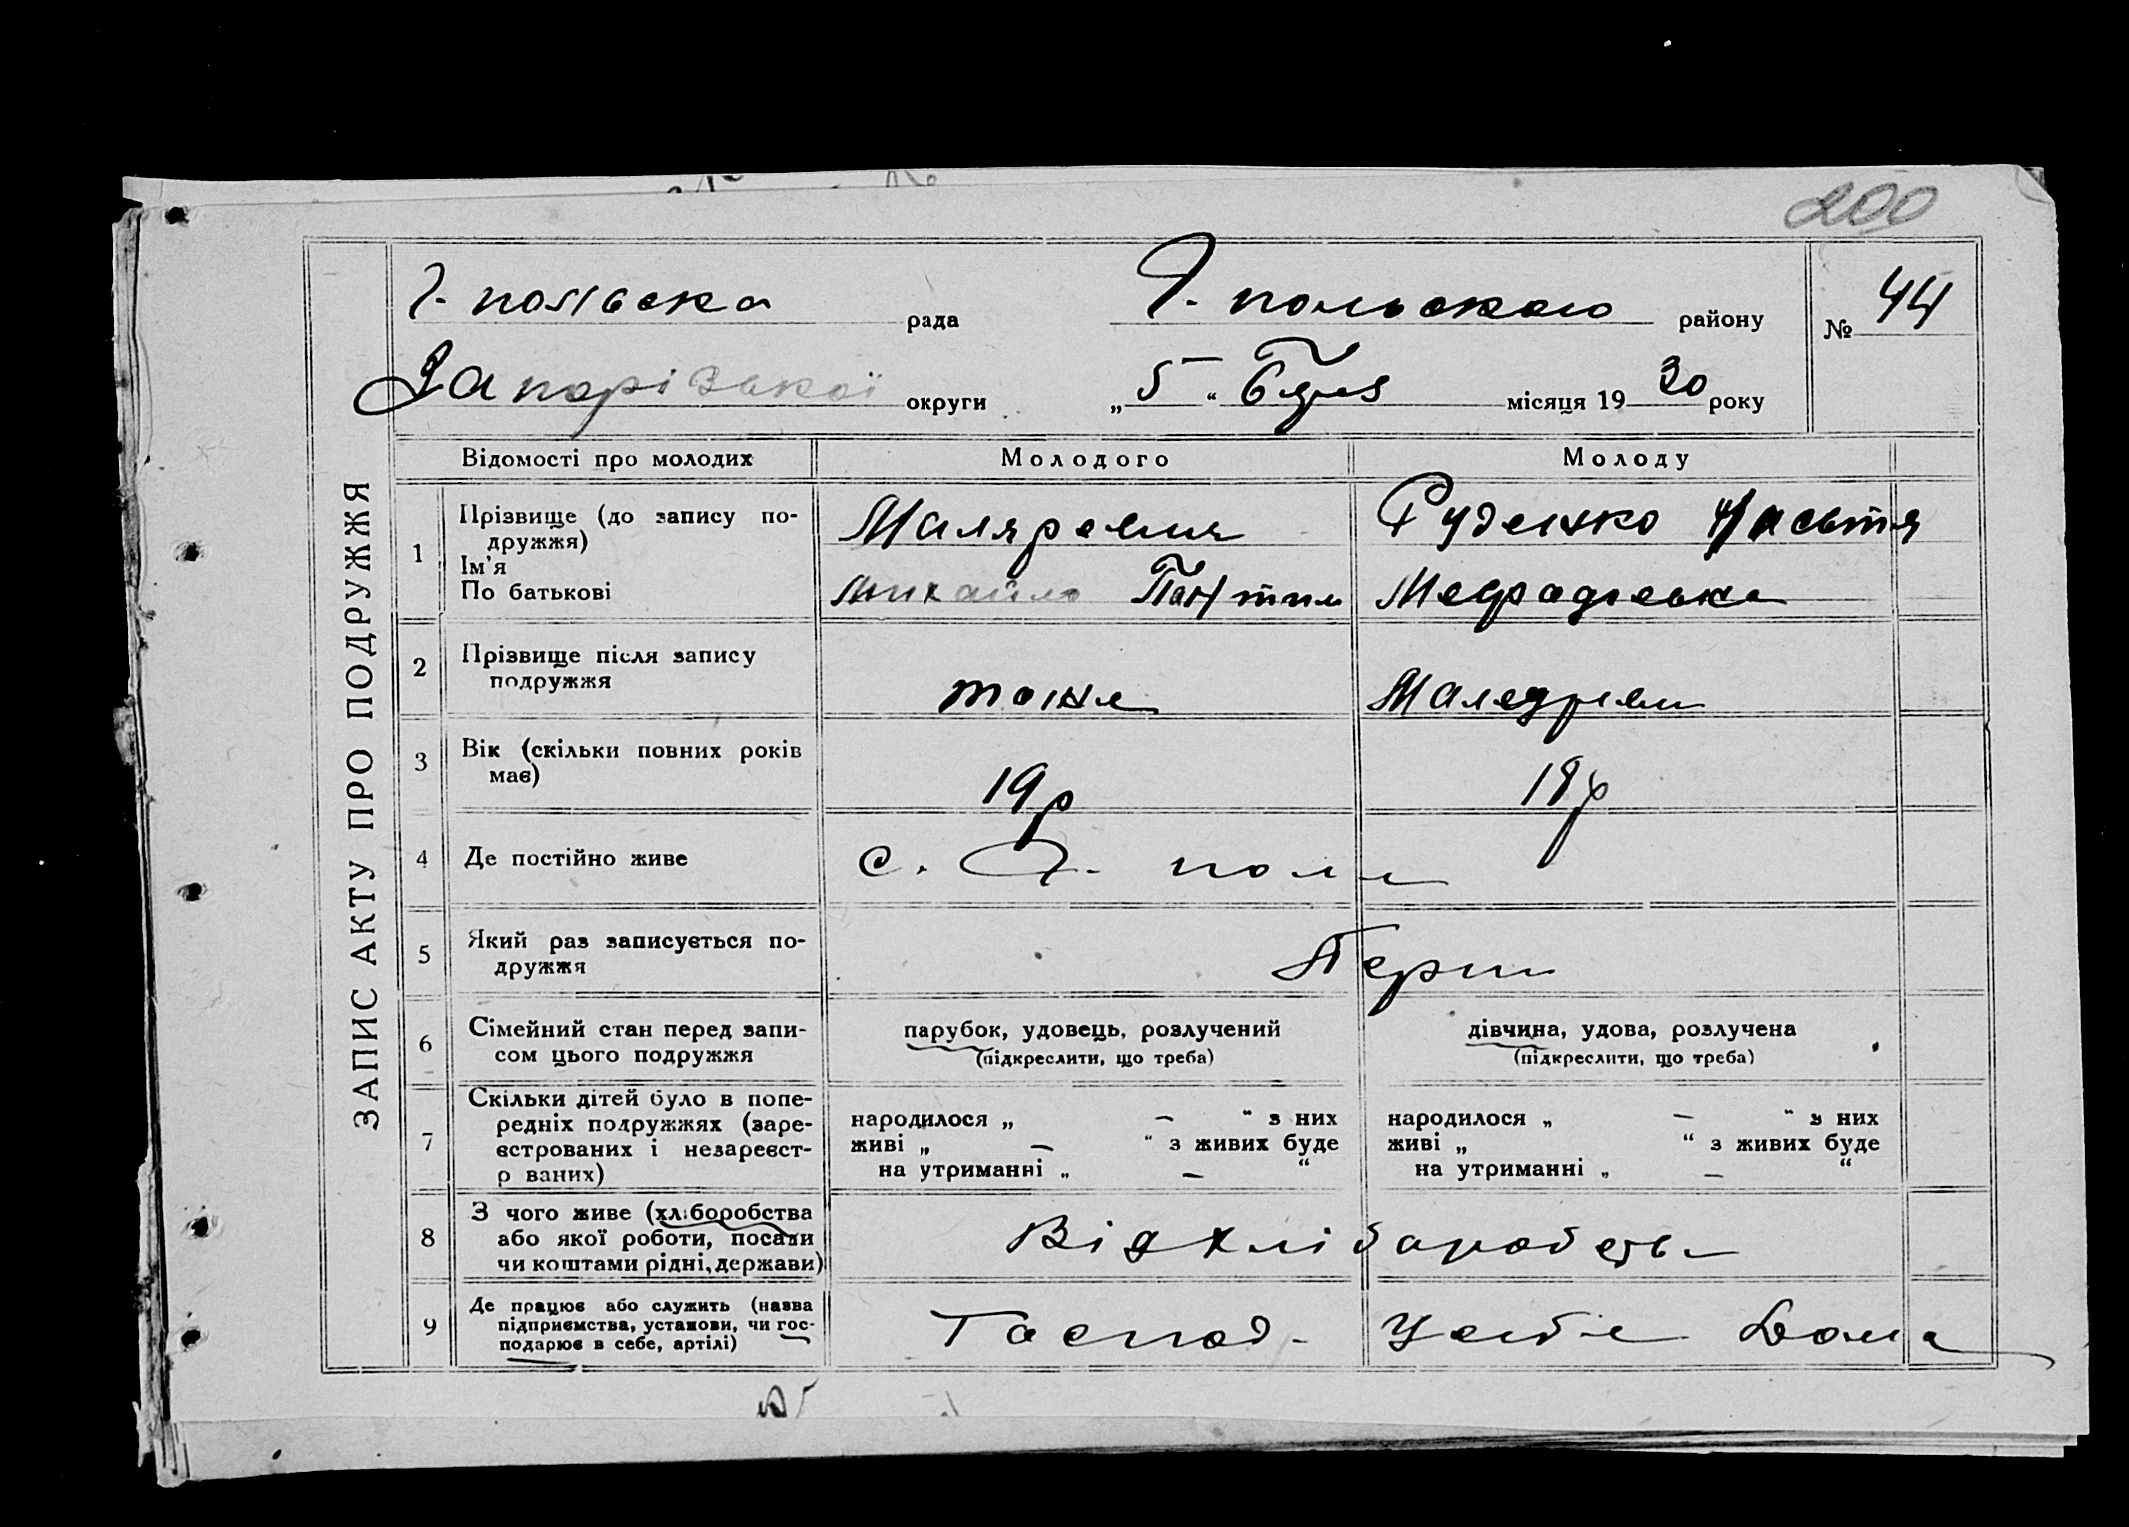 200
Г. польська рада Г. польського району № 44
Запорізької округи „ 5 “ місяця 19 30 року
ЗАПИС АКТУ ПРО ПОДРУЖЖЯ
Відомості про молодих Молодого Молоду
1 Прізвище (до запису по-
дружжя)
Ім'я
По батькові
Маляренко
Михайло
Руденко Настя
2 Прізвище після запису
подружжя
тоже
3 Вік (скільки повних років
має)
19р
18р
4 Де постійно живе
с. Г. поле
5 Який раз записується по-
дружжя
Перш
6 Сімейний стан перед запи-
сом цього подружжя
парубок, удовець, розлучений
(підкреслити, що треба)
дівчина, удова, розлучена
(підкреслити, що треба)
7 Скільки дітей було в попе-
редніх подружжях (заре-
єстрованих і незареєст-
р ваних)
народилося „ — “ з них
живі „ — “ з живих буде
на утриманні „ — “
народилося „ — “ з них
живі „ “ з живих буде
на утриманні „ — “
8 З чого живе (хліборобства
або якої роботи, посади
чи коштами рідні, держави)
Від хліборобства
9 Де працює або служить (назва
підприємства, установи, чи гос-
подарює в себе, артілі)
Господ- У себе Дома